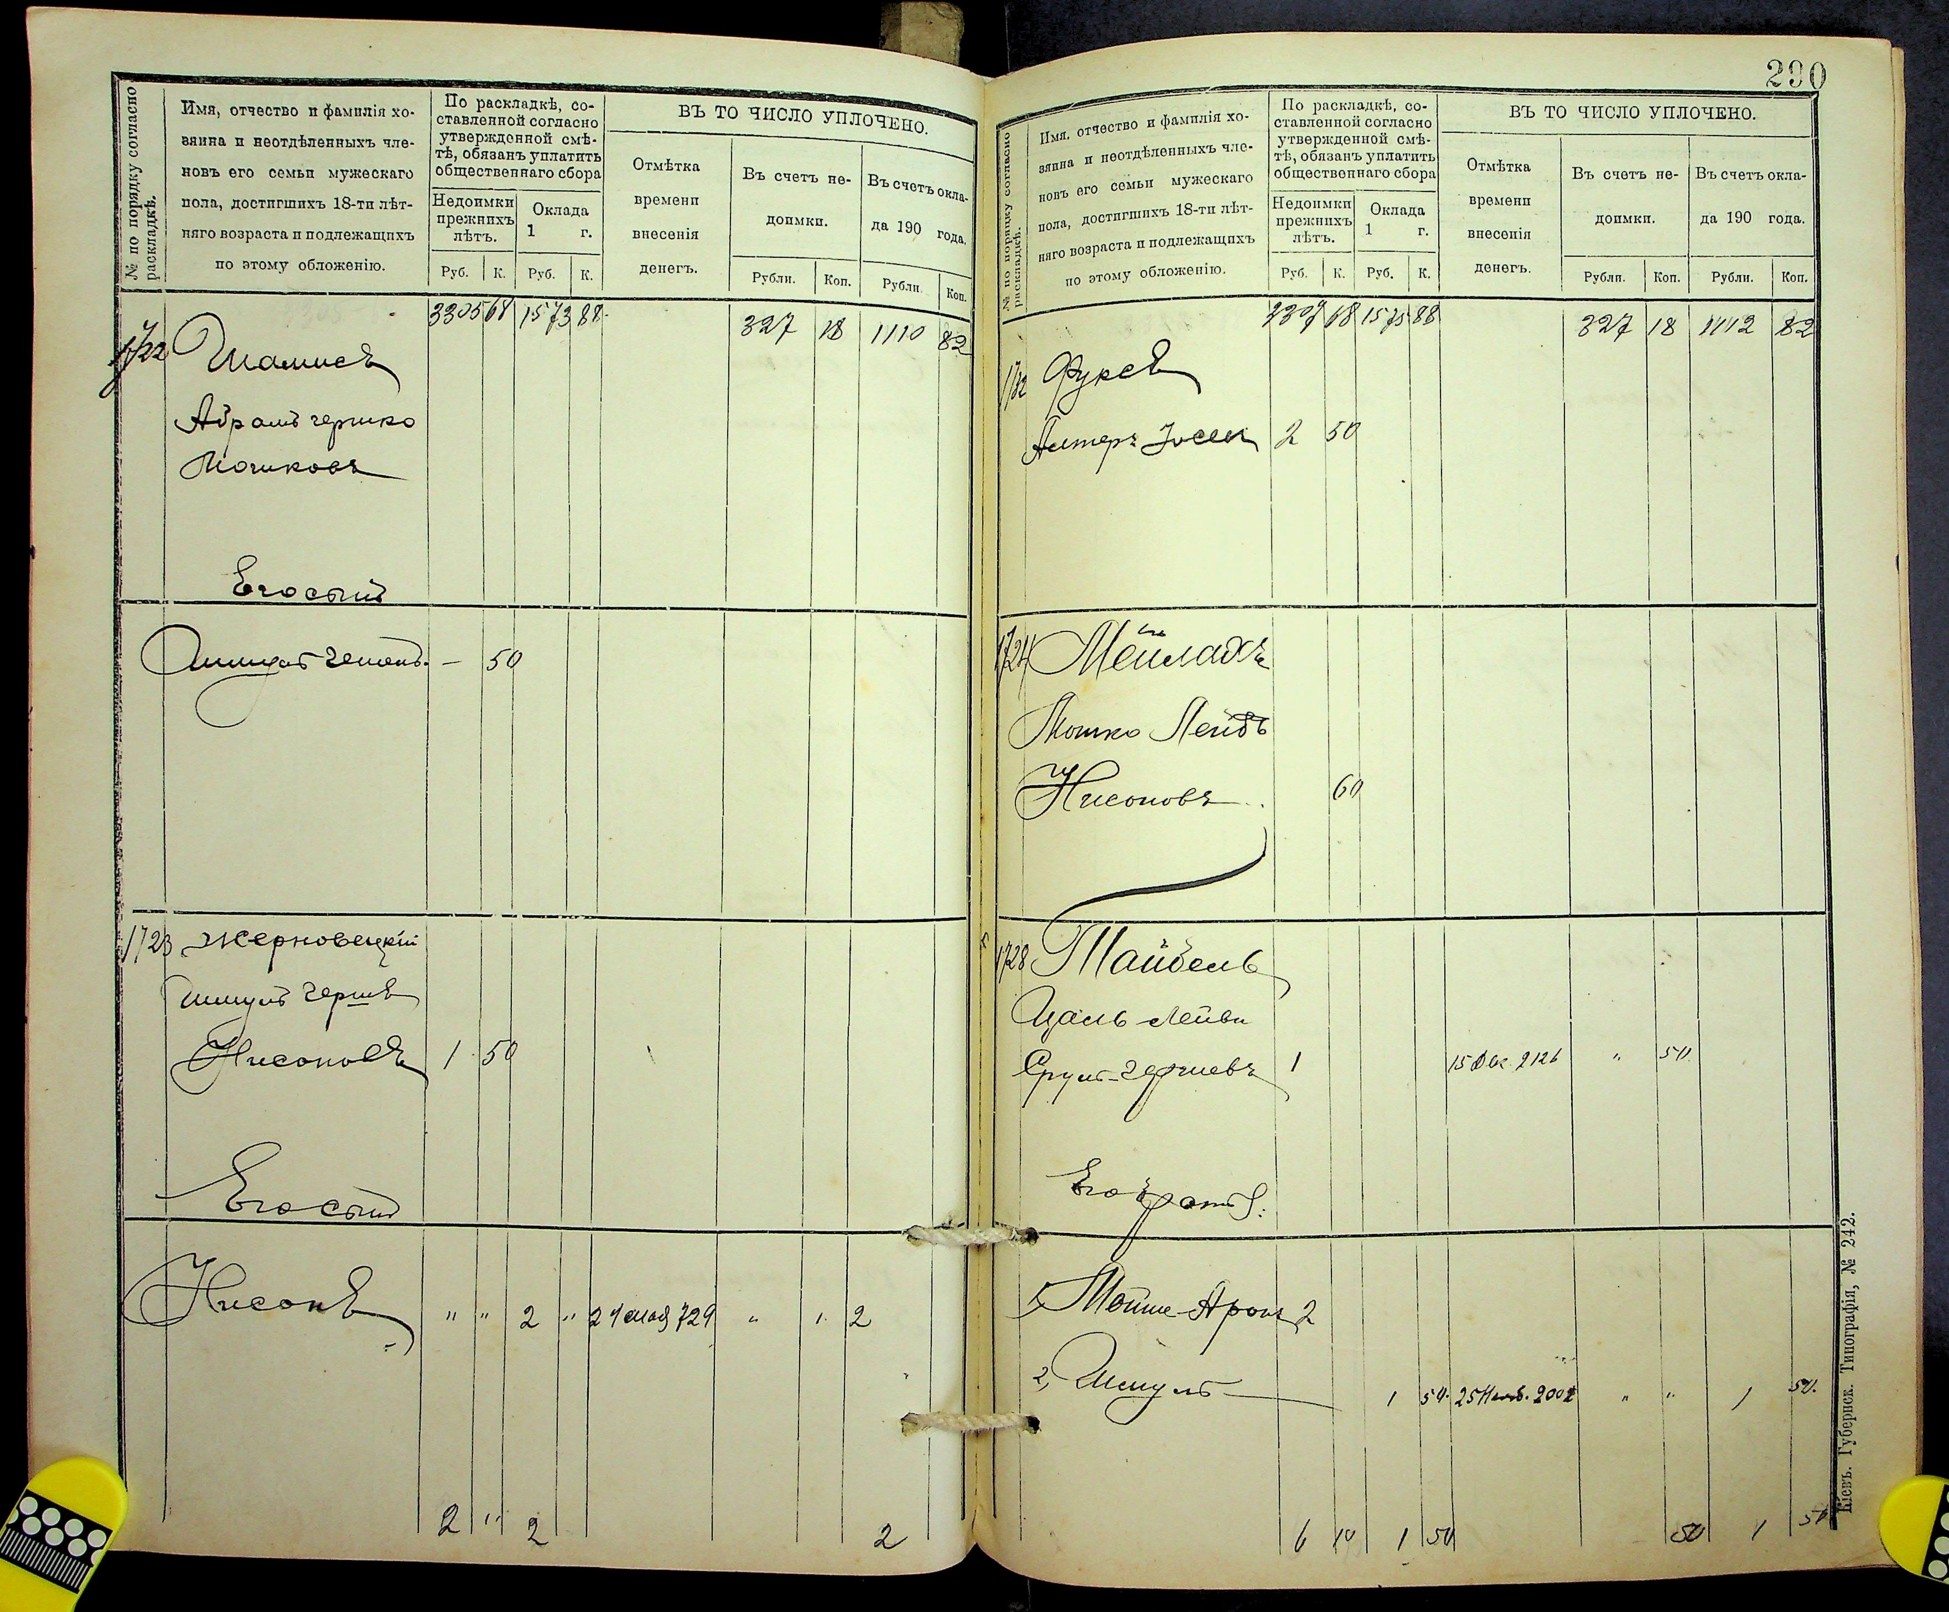 290
№ по порядку согласно раскладкѣ.
Имя, отчество и фамилія хо-
зяина и неотдѣленныхъ чле-
новъ его семьи мужескаго
пола, достигшихъ 18-ти лѣт-
няго возраста и подлежащихъ
по этому обложенію.
По раскладкѣ, со-
ставленной согласно
утвержденной смѣ-
тѣ, обязанъ уплатить
общественнаго сбора
Недоимки
прежнихъ
лѣтъ.
Оклада
1 г.
Руб. К. Руб. К.
ВЪ ТО ЧИСЛО УПЛОЧЕНО.
Отмѣтка
времени
внесенія
денегъ.
Въ счетъ не-
доимки.
Въ счетъ окла-
да 190 года.
Рубли. Коп. Рубли Коп.
3305 68 1573 88 327 18 1110 82
1722 Шамисъ
Абрамъ гершко
Мошковъ
Его сынъ
Шмулъ – 50
1723 Жерновецкій
Шмулъ Гершъ
Нисоновъ 1 50
Его сынъ
Нисонъ " " 2 " 729 " 2
2 " 2 2
№ по порядку согласно раскладкѣ.
Имя, отчество и фамилія хо-
зяина и неотдѣленныхъ чле-
новъ его семьи мужескаго
пола, достигшихъ 18-ти лѣт-
няго возраста и подлежащихъ
по этому обложенію.
По раскладкѣ, со-
ставленной согласно
утвержденной смѣ-
тѣ, обязанъ уплатить
общественнаго сбора
Недоимки
прежнихъ
лѣтъ.
Оклада
1 г.
Руб. К. Руб. К.
ВЪ ТО ЧИСЛО УПЛОЧЕНО.
Отмѣтка
времени
внесенія
денегъ.
Въ счетъ не-
доимки.
Въ счетъ окла-
да 190 года.
Рубли. Коп. Рубли. Коп.
3307 68 1575 88 327 18 1112 82
Фуксъ
Алтеръ Іосея 2 50
1724 Мейлахъ
Мошко Лейбъ
Нисоновъ 60
1728 Тайбель
Ицаль Лейви
Срулъ-Гершевъ 1 15 Дек. 2126 " 50
Его братъ:
1, Мойше-Аронъ 2
2, Шмулъ 1 50 25 Нояб. 2002 " " 1 50.
6 10 1 50 50 1 50
Кіевъ. Губернск. Типографія, № 242.